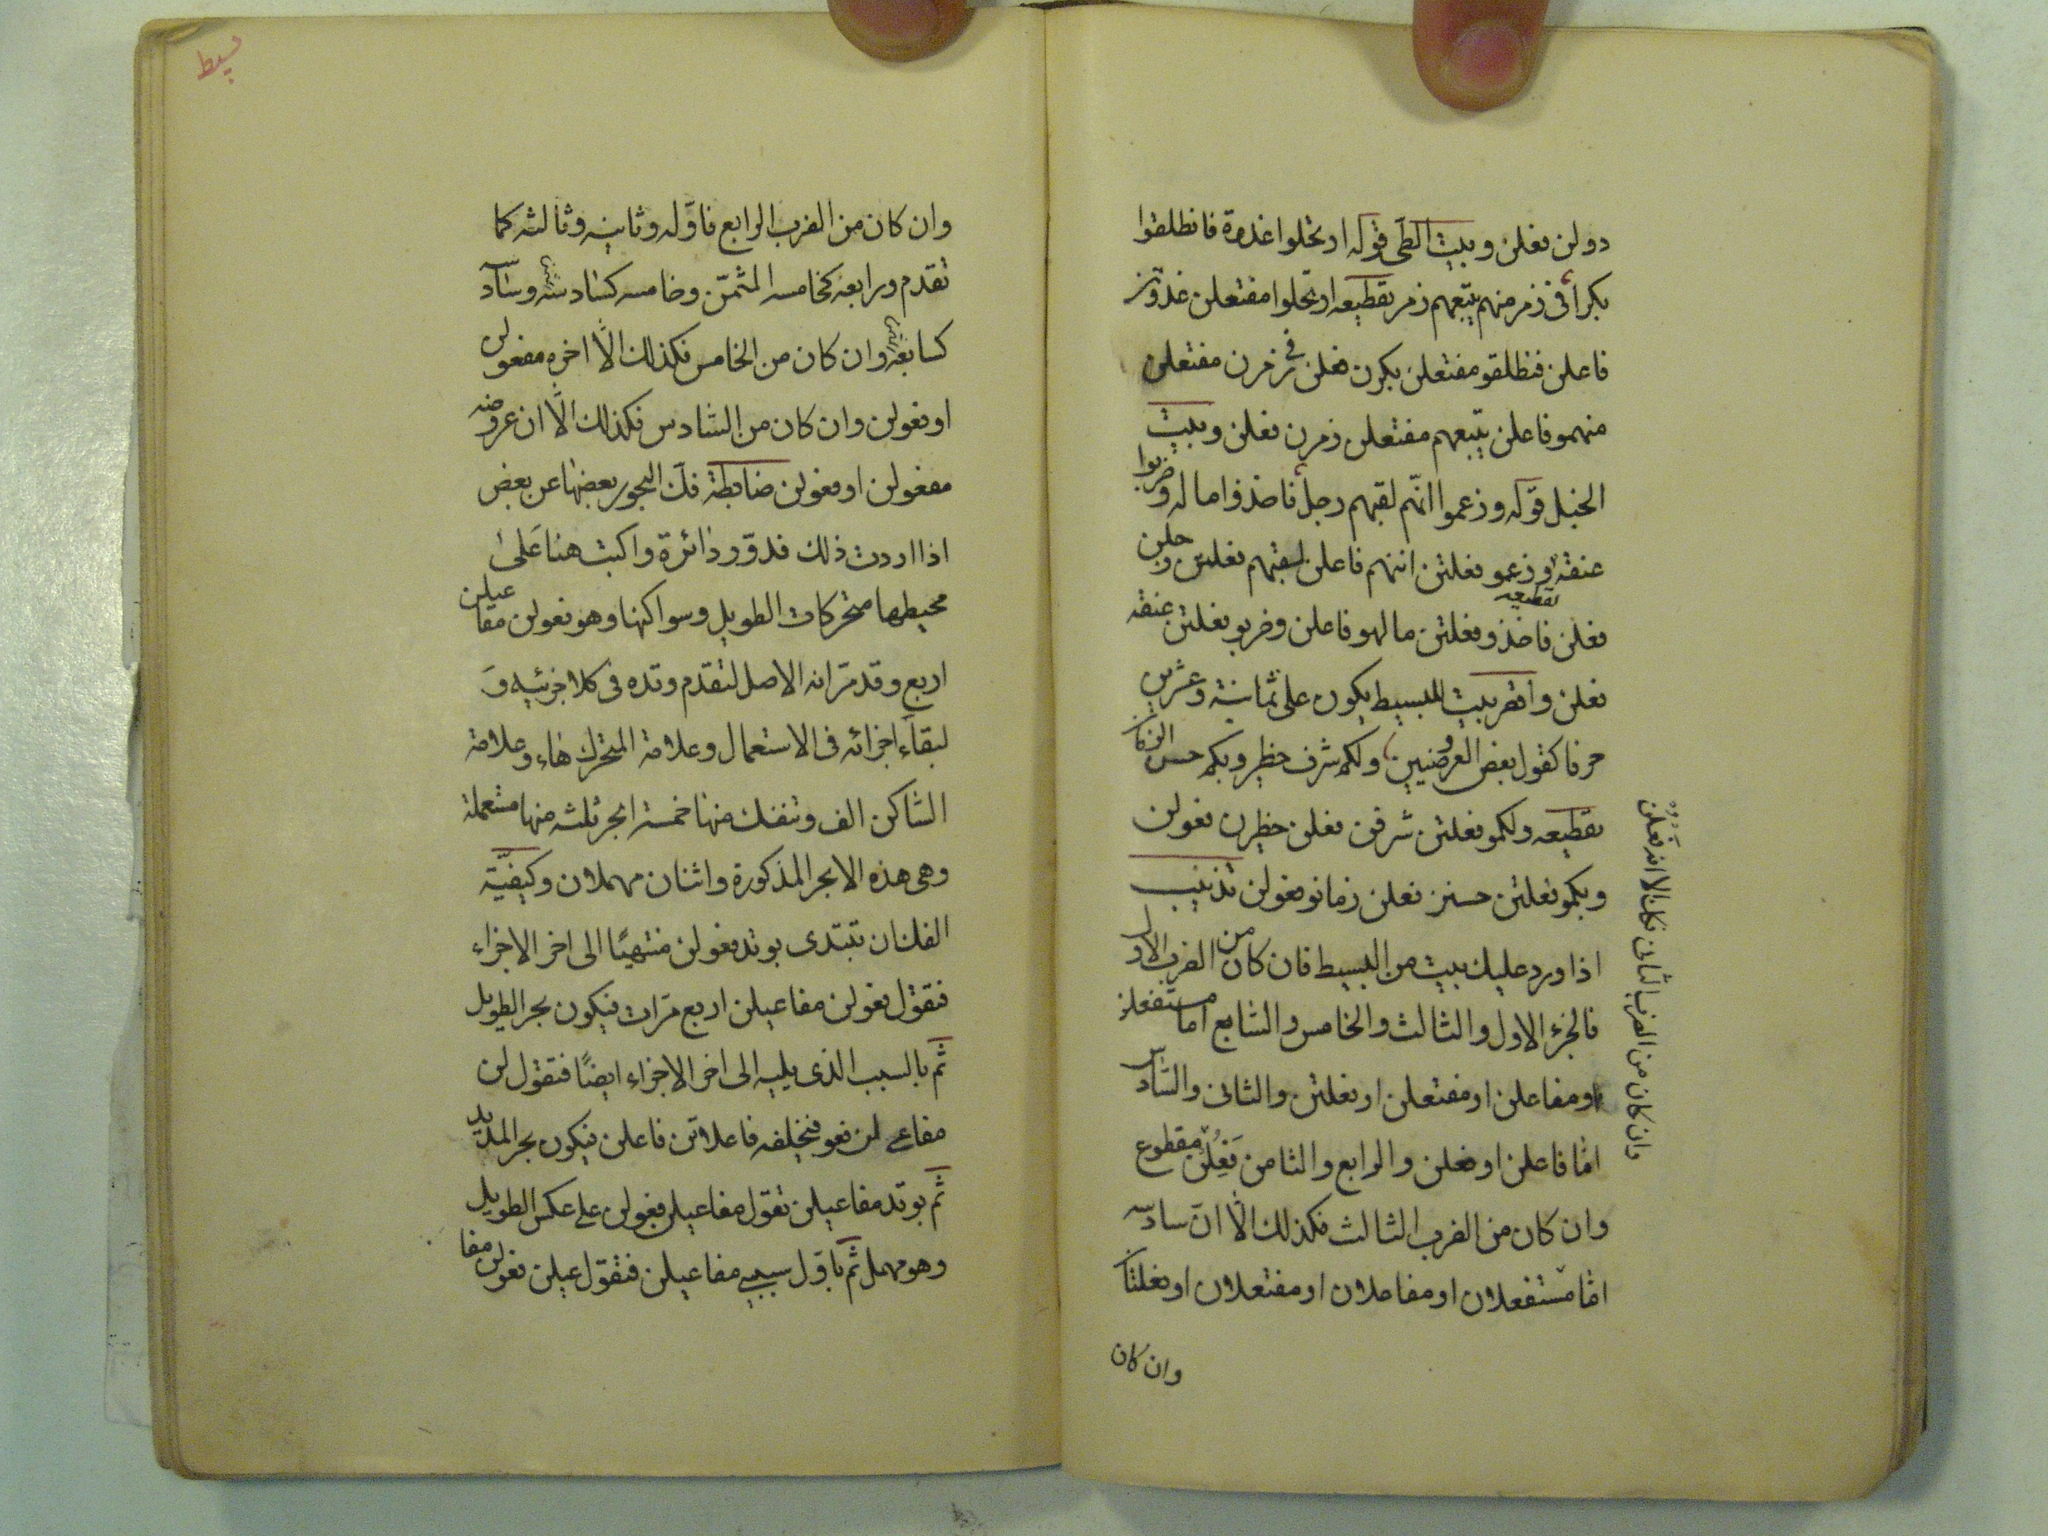 دولن فعلن وبيت الطى قوله ارتحلوا غدوة فانطلقوا
بكرا فى زمر منهم يتبعهم زمر تقطيعه ارتحلوا مفتعلن غدوتن
فاعلن فنطلقو مفتعلن بكرن فعلن فى زمرن مفتعلن
منهمو فاعلن يتبعهم مفتعلن زمرن فعلن وبيت
الخبل قوله وزعموا انهم لقيهم رجل فاخذوا ماله وضربوا
عنقه تقطيعه وزعمو فعلتن اننهم فاعلن لقيهم فعلتن رجلن
فعلن فاخذو فعلتن مالهو فاعلن وضربو فعلتن عنقه
فعلن واقصر بيت للبسيط يكون على ثمانية وعشرين
حرفا كقول بعض العروضيين ولكم شرف خطر وبكم حسن الزمن
تقطيعه ولكمو فعلتن شرفن فعلن خطرن فعولن
وبكمو فعلتن حسنز فعلن زمانو فعولن تذنيب
اذا ورد عليك بيت من البسيط فان كان من الضرب الاول
فالجزء الاول والثالث والخامس والسابع اما مستفعلن
او مفاعلن او مفتعلن او فعلتن والثانى والسادس
امّا فاعلن او فعلن والرابع والثامن فَعِلُن مقطوع
وان كان من الضرب الثالث فكذلك الّا انّ سادسه
امّا مستفعلان او مفاعلان او مفتعلان او فعلتان
وان كان
وان كان من الضرب الثانى فكذلك الا انه فعلن
بسيط
وان كان من الضرب الرابع فاوّله وثانيه وثالثه كما
تقدم ورابعه كخامسه المثمّن وخامسه كسادسه وسادسه
كسابعه وان كان من الخامس فكذلك الّا اخره مفعولن
او فعولن وان كان من السّادس فكذلك الّا ان عروضه
مفعولن او فعولن ضابطة فكّ البحور بعضها عن بعض
اذا اردت ذلك فدوّر دائرة واكتب هنا على
محيطها متحركات الطويل وسواكنها وهو فعولن مفاعيلن
اربع وقد مرّ انه الاصل لتقدم وتده فى كلا جزئيه وَ
لبقاء اجزائه فى الاستعمال وعلامة المتحرك هاء وعلامة
السّاكن الف وتنفك منها خمسة ابحر ثلثه منها مستعملة
وهى هذه الابحر المذكورة واثنان مهملان وكيفيّة
الفك ان تبتدى بوتد فعولن منتهيًا الى اخر الاجزاء
فتقول فعولن مفاعيلن اربع مرّات فيكون بحر الطويل
ثم بالسبب الذى يليه الى اخر الاجزاء ايضًا فتقول لن
مفاعى لن فعو فيخلفه فاعلاتن فاعلن فيكون بحر المديد
ثم بوتد مفاعيلن تقول مفاعيلن فعولن على عكس الطويل
وهو مهمل ثم باوّل سببى مفاعيلن فتقول عيلن فعولن مفا